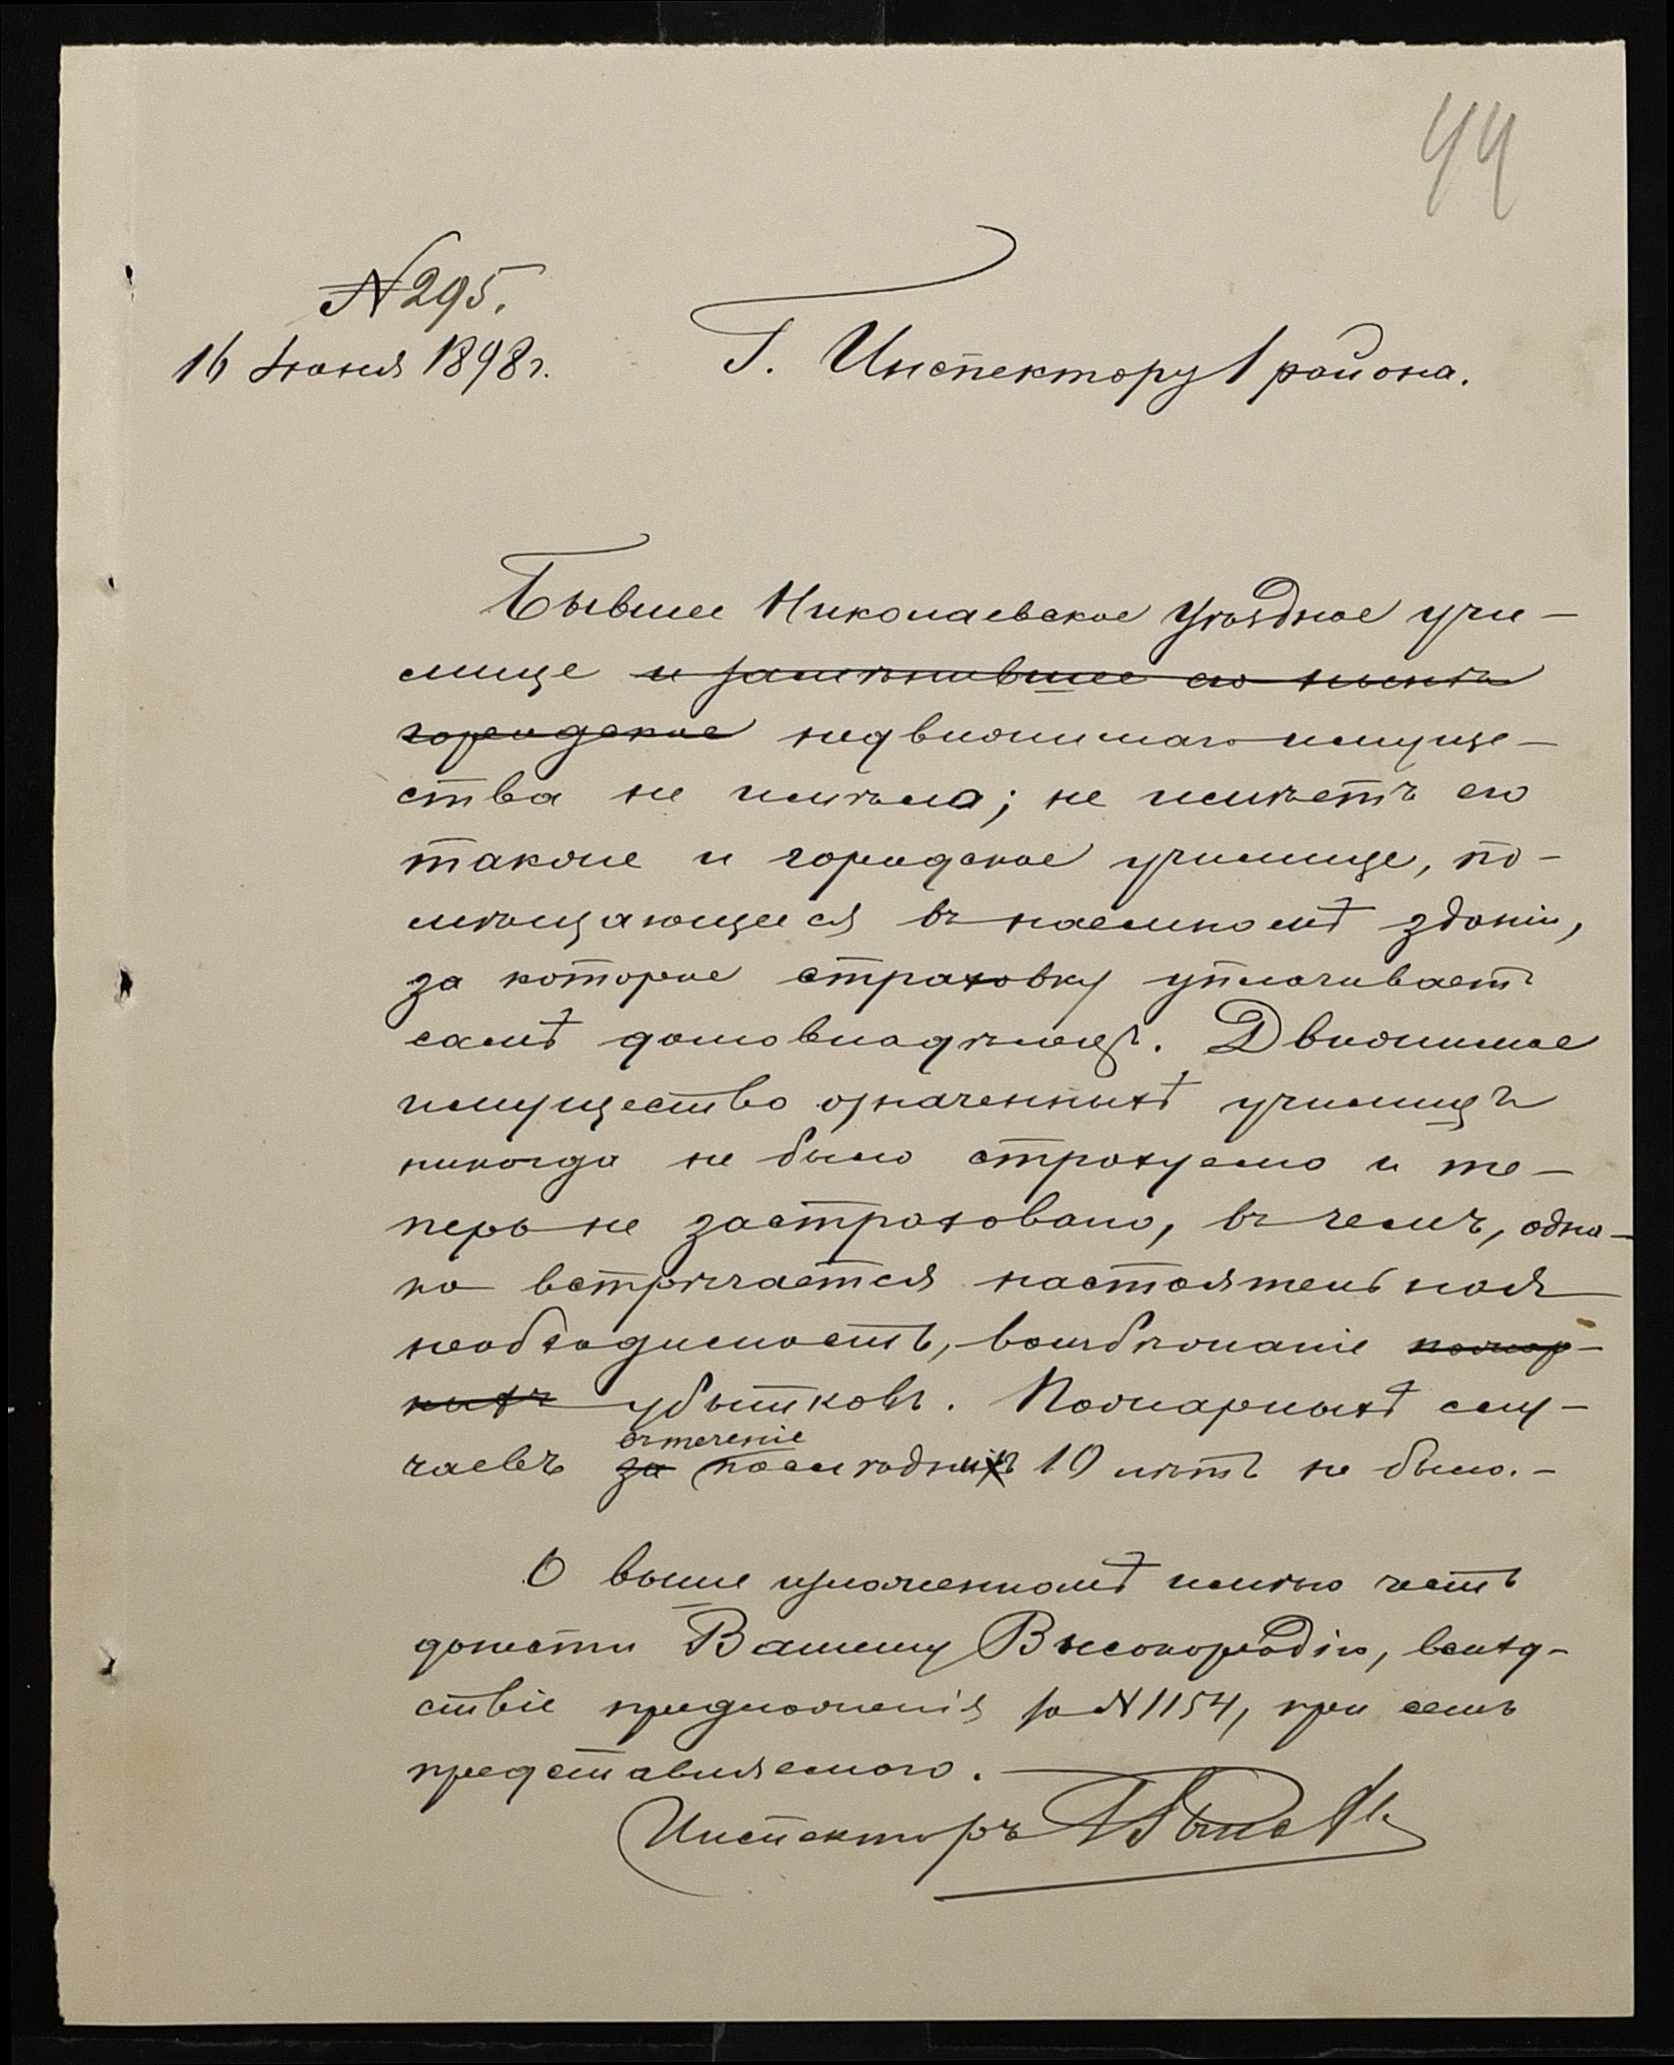 44
№ 295.
16 Iюня 1898 г.
Г. Инспектору 1 района.
Бывшее Николаевское уѣздное учи-
лище и замѣнившее его нынѣ
городское недвижимаго имуще-
ства не имѣло; не имѣетъ его
также и городское училище, по-
мѣщающееся въ наемномъ зданіи,
за которое страховку уплачиваетъ
самъ домовладѣлецъ. Движимое
имущество означенныхъ училищъ
никогда не было страхуемо и те-
перь не застраховано, въ чемъ, одна-
ко встрѣчается настоятельная
необходимость, во избѣжаніе пожар-
ныхъ убытковъ. Пожарныхъ слу-
въ теченіе
чаевъ за послѣдних 10 лѣтъ не было.-
О выше изложенномъ имѣю честь
донести Вашему Высокородію, вслѣд-
ствіе предложенія за № 1154, при семъ
представляемаго.
Инспекторъ